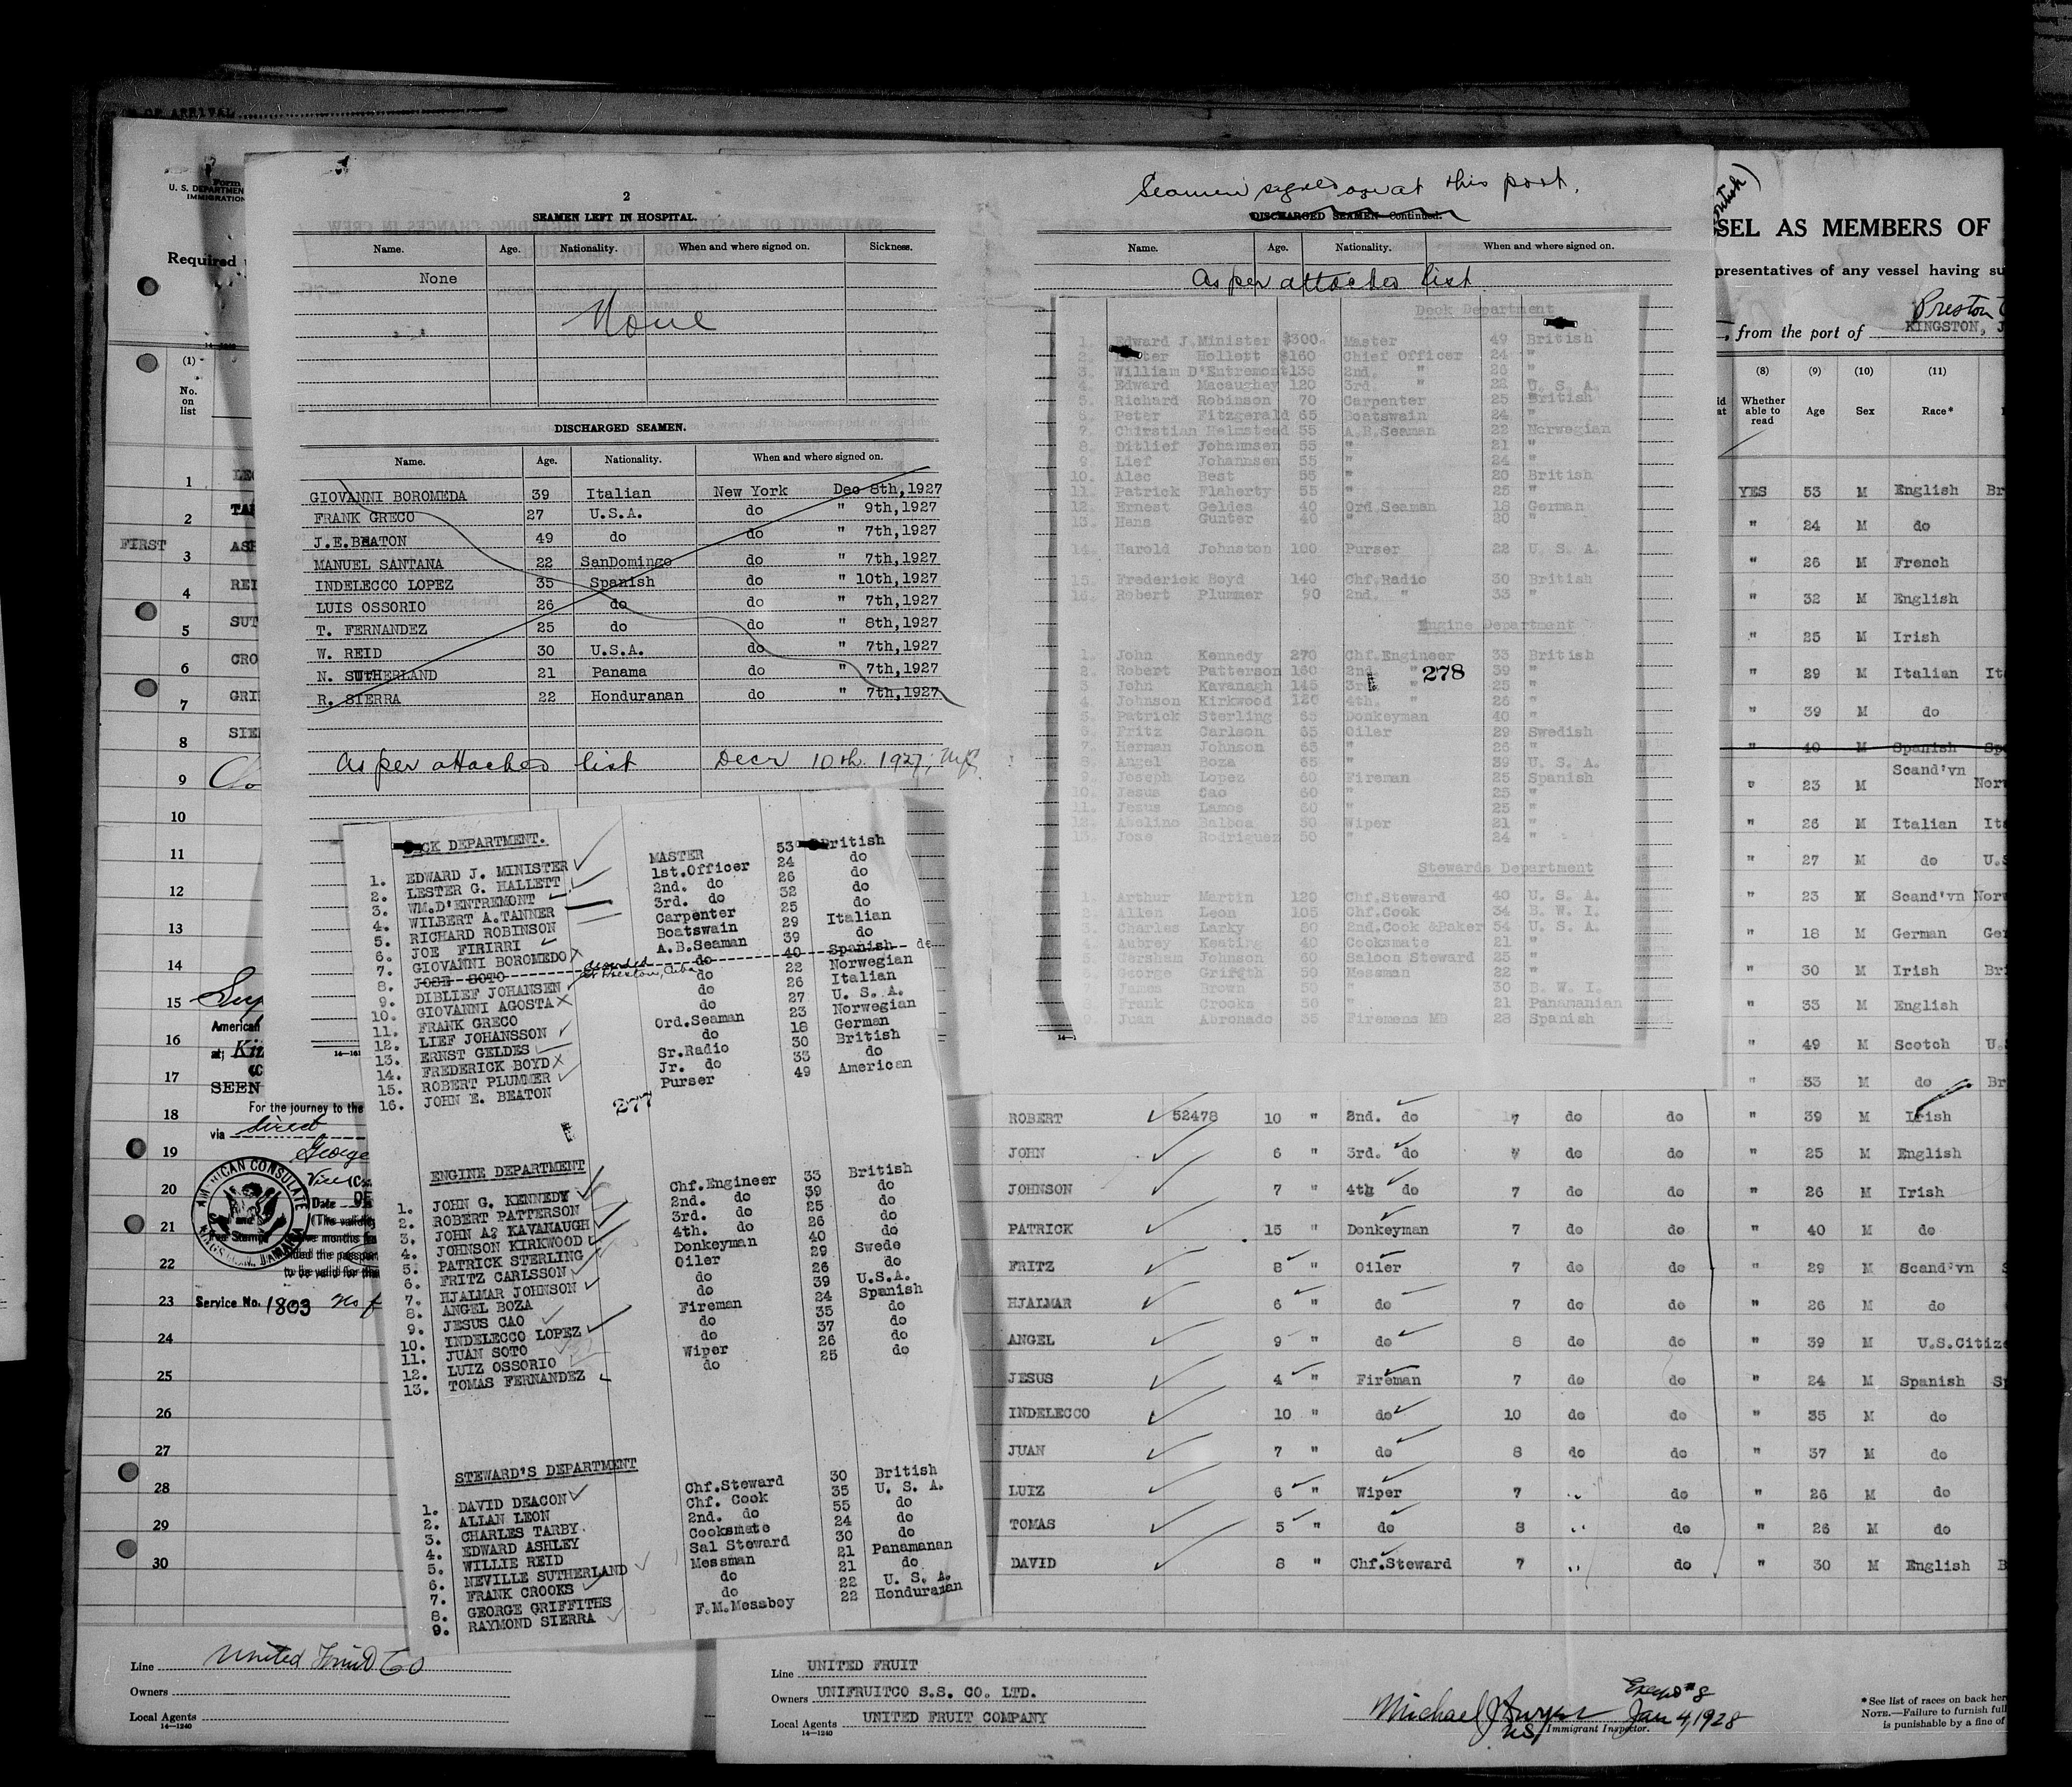 OF ARRIVAL
Form
U. S. DEPARTMEN
IMMIGRATION
Required
(1)
No.
on
list
1
2
FIRST
3
ASH
4
REI
5
SUT
6
CRO
7
GRI
8
SIE
9
10
11
12
13
14
15
16
American
at; Kin
17
SEEN
18
For the journey to the
via direct
19
George
Vice Co
20
Date
AMERICAN CONSULATE
21
Fee Stamp
22
to be valid for the
23
Service No. 1803 No f
24
25
26
27
28
29
30
Line United Fruit Co
Owners
Local Agents
14—1240
2
SEAMEN LEFT IN HOSPITAL.
Name. Age. Nationality. When and where signed on. Sickness.
None
None
DISCHARGED SEAMEN.
Name. Age. Nationality. When and where signed on.
GIOVANNI BOROMEDA 39 Italian New York Dec 8th,1927
FRANK GRECO 27 U.S.A. do " 9th,1927
J.E.BEATON 49 do do " 7th,1927
MANUEL SANTANA 22 SanDomingo do " 7th,1927
INDELECCO LOPEZ 35 Spanish do " 10th,1927
LUIS OSSORIO 26 do do " 7th,1927
T. FERNANDEZ 25 do do " 8th,1927
W. REID 30 U.S.A. do " 7th,1927
N. SUTHERLAND 21 Panama do " 7th,1927
R. SIERRA 22 Honduranan do " 7th,1927
As per attached list Decr 10th 1927,
DECK DEPARTMENT.
1. EDWARD J. MINISTER MASTER 53 British
2. LESTER G. HALLETT 1st.Officer 24 do
3. WM.D'ENTREMONT 2nd. do 26 do
4. WILBERT A.TANNER 3rd. do 32 do
5. RICHARD ROBINSON Carpenter 25 do
6. JOE FIRIRRI Boatswain 29 Italian
7. GIOVANNI BOROMEDO A.B.Seaman 39 do
8. JOSE SOTO do 40 Spanish
9. DIBLIEF JOHANSEN do 22 Norwegian
10. GIOVANNI AGOSTA do 26 Italian
11. FRANK GRECO do 27 U. S. A.
12. LIEF JOHANSSON Ord.Seaman 23 Norwegian
13. ERNST GELDES do 18 German
14. FREDERICK BOYD Sr.Radio 30 British
15. ROBERT PLUMMER Jr. do 33 do
16. JOHN E. BEATON Purser 49 American
277
ENGINE DEPARTMENT
1. JOHN G. KENNEDY Chf.Engineer 33 British
2. ROBERT PATTERSON 2nd. do 39 do
3. JOHN A? KAVANAUGH 3rd. do 25 do
4. JOHNSON KIRKWOOD 4th. do 26 do
5. PATRICK STERLING Donkeyman 40 do
6. FRITZ CARLSSON Oiler 29 Swede
7. HJALMAR JOHNSON do 26 do
8. ANGEL BOZA do 39 U.S.A.
9. JESUS CAO Fireman 24 Spanish
10. INDELECCO LOPEZ do 35 do
11. JUAN SOTO do 37 do
12. LUIZ OSSORIO Wiper 26 do
13. TOMAS FERNANDEZ do 25 do
STEWARD'S DEPARTMENT
1. DAVID DEACON Chf.Steward 30 British
2. ALLAN LEON Chf. Cook 35 U. S. A.
3. CHARLES TARBY. 2nd. do 55 do
4. EDWARD ASHLEY Cooksmate 24 do
5. WILLIE REID Sal Steward 30 do
6. NEVILLE SUTHERLAND Messman 21 Panamanan
7. FRANK CROOKS do 21 do
8. GEORGE GRIFFITHS do 22 U. S. A.
9. RAYMOND SIERRA F.M.Messboy 22 Honduranan
Seamen signed on at this port.
DISCHARGED SEAMEN—Continued.
Name. Age. Nationality. When and where signed on.
As per attached list
Deck Department
1. Edward J.Minister $300. Master 49 British
2. Hollett $160 Chief Officer 24 "
3. William D'Entremont 135 2nd. " 26 "
4. Edward Macaughey 120 3rd. " 22 U. S. A.
5. Richard Robinson 70 Carpenter 25 British
6. Peter Fitzgerald 65 Boatswain 24 "
7. Chirstian Helmstead 55 A.B.Seaman 22 Norwegian
8. Ditlief Johannsen 55 " 21 "
9. Lief Johannsen 55 " 24 "
10. Alec Best 55 " 20 British
11. Patrick Flaherty 55 " 25 "
12. Ernest Geldes 40 Ord.Seaman 18 German
13. Hans Gunter 40 " 20 "
14. Harold Johnston 100 Purser 22 U. S. A.
15. Frederick Boyd 140 Chf.Radio 30 British
16. Robert Plummer 90 2nd. " 33 "
Engine Department
1. John Kennedy 270 Chf.Engineer 33 British
2. Robert Patterson 160 2nd. " 39 "
278
3 John Kavanagh 145 3rd " 25 "
4. Johnson Kirkwood 120 4th. " 26 "
5. Patrick Sterling 65 Donkeyman 40 "
6. Fritz Carlson 65 Oiler 29 Swedish
7. Herman Johnson 65 " 26 "
8. Angel Boza 65 " 39 U. S. A.
9. Joseph Lopez 60 Fireman 25 Spanish
10. Jesus Cao 60 " 25 "
11. Jezus Lamos 60 " 25 "
12. Abelino Balboa 50 Wiper 21 "
13. Jose Rodriguez 50 " 24 "
Stewards Department
1. Arthur Martin 120 Chf.Steward 40 U. S. A.
Allen Leon 105 Chf.Cook 34 B. W. I.
Charles Larky 50 2nd.Cook &Baker 54 U. S. A.
Aubrey Keating 40 Cooksmate 21 "
Gersham Johnson 60 Saloon Steward 25 "
George Griffth 50 Messman 22 "
James Brown 50 " 30 B. W. I.
Frank Crooks 50 " 21 Panamanian
Juan Abronado 35 Firemens MB 28 Spanish
SSEL AS MEMBERS OF
presentatives of any vessel having su
Preston
, from the port of KINGSTON, J
(8) (9) (10) (11)
Whether able to read Age Sex Race*
YES 53 M English Br
" 24 M do
" 26 M French
" 32 M English
" 25 M Irish
" 29 M Italian It
" 39 M do
" 40 M Spanish Sp
" 23 M Scand'vn Norw
" 26 M Italian Ita
" 27 M do U.S
" 23 M Scand'vn Norw
" 18 M German Ger
" 30 M Irish Bri
" 33 M English
" 49 M Scotch U.S
" 33 M do Br
ROBERT 52478 10 " 2nd. do 7 do do " 39 M Irish
JOHN 6 " 3rd. do 7 do do " 25 M English
JOHNSON 7 " 4th do 7 do do " 26 M Irish
PATRICK 15 " Donkeyman 7 do do " 40 M do
FRITZ 8 " Oiler 7 do do " 29 M Scand'vn S
HJALMAR 6 " do 7 do do " 26 M do
ANGEL 9 " do 8 do do " 39 M U.S.Citize
JESUS 4 " Fireman 7 do do " 24 M Spanish Sp
INDELECCO 10 " do 10 do do " 35 M do
JUAN 7 " do 8 do do " 37 M do
LUIZ 6 " Wiper 7 " do " 26 M do
TOMAS 5 " do 8 " do " 26 M do
DAVID 8 " Chf.Steward 7 " do " 30 M English B
Line UNITED FRUIT
Owners UNIFRUITCO S.S. CO. LTD.
Local Agents UNITED FRUIT COMPANY
14—1240
Michael J
US Immigrant Inspector.
Jan 4,1928
*See list of races on back her
NOTE.—Failure to furnish full
is punishable by a fine of